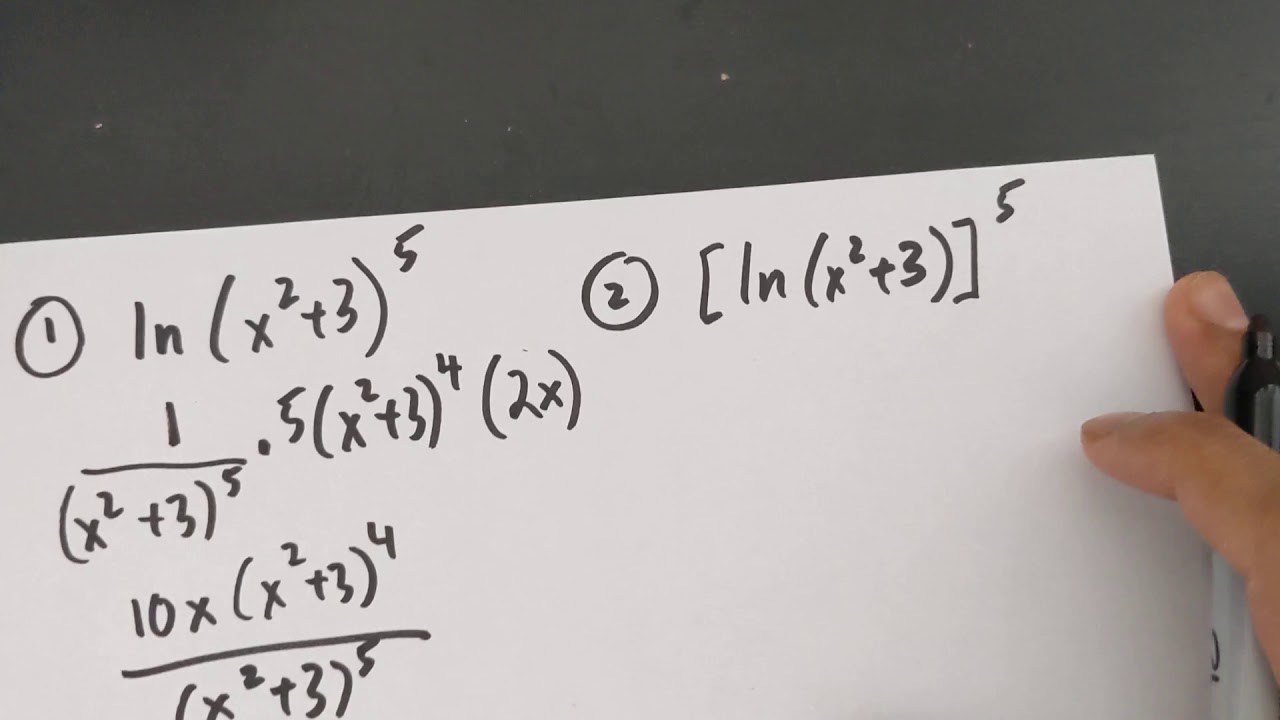 ① ln(x²+3)⁵
1/(x²+3)⁵ · 5(x²+3)⁴(2x)
10x(x²+3)⁴/(x²+3)⁵
② [ln(x²+3)]⁵